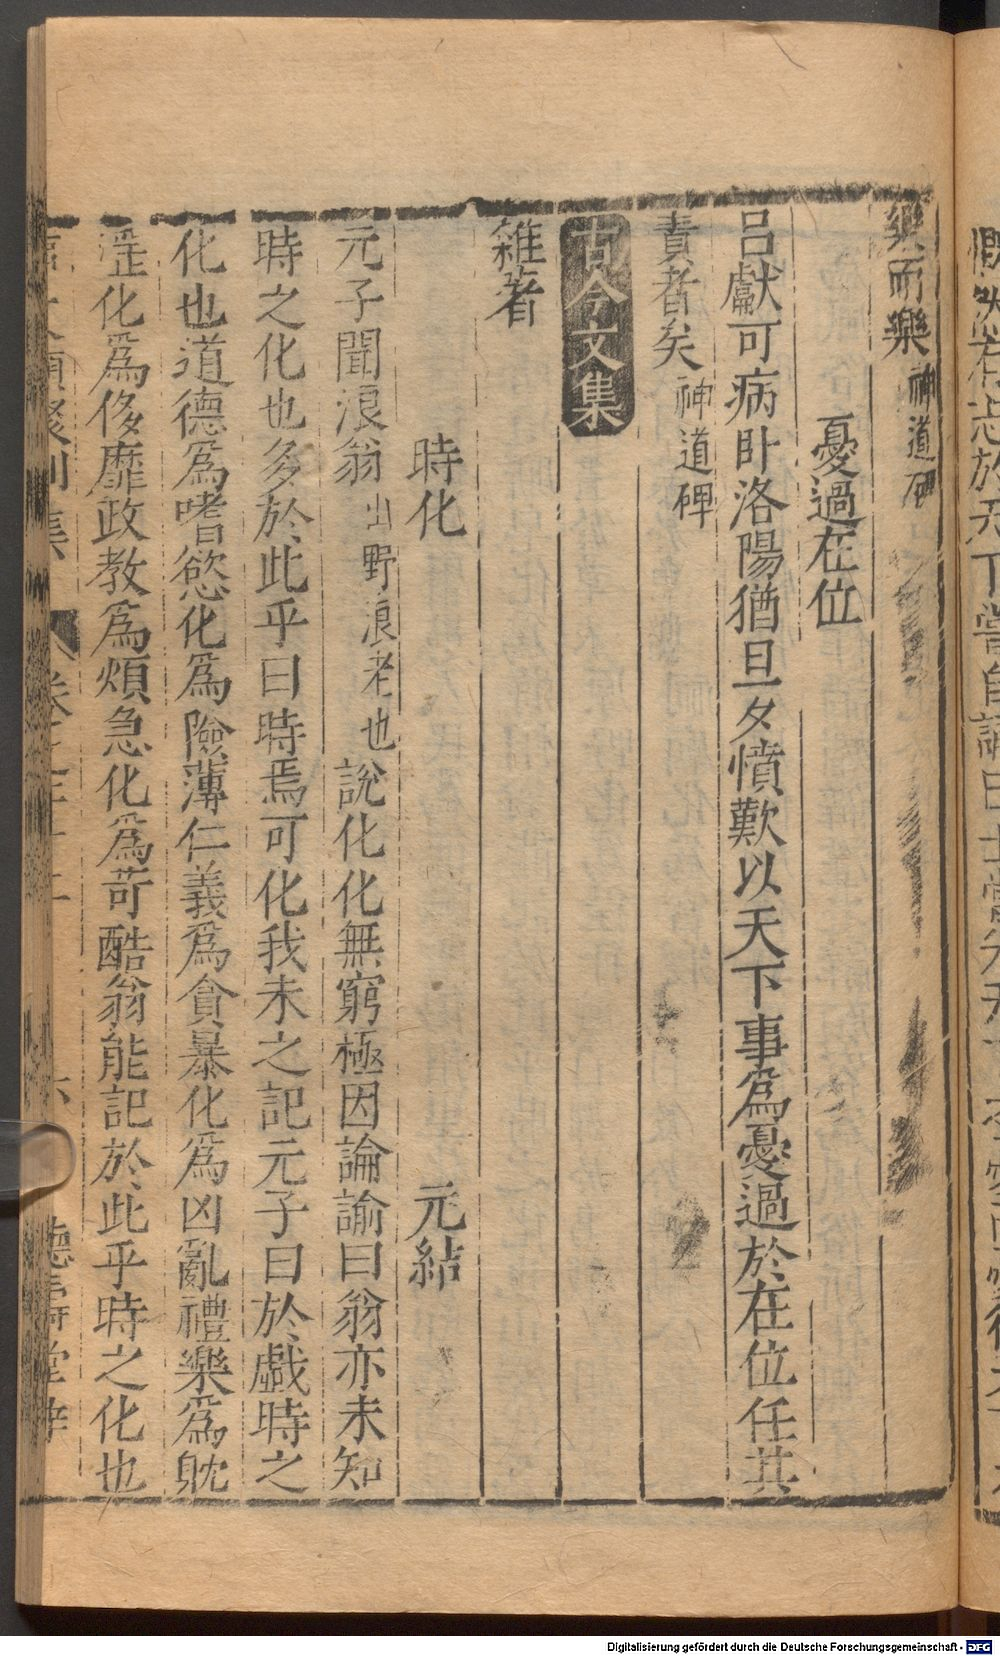 樂而樂神道碑
憂過在位
呂獻可病卧洛陽猶旦夕憤歎以天下事爲憂過於在位任其
責者矣神道碑
古今文集
雜著
時化 元結
元子聞浪翁山野浪老也說化化無窮極因論諭曰翁亦未知
時之化也多於此乎曰時焉可化我未之記元子曰於戲時之
化也道德爲嗜慾化爲險薄仁義爲貪暴化爲凶亂禮樂爲耽
淫化爲侈靡政教爲煩急化爲苛酷翁能記於此乎時之化也
Digitalisierung gefördert durch die Deutsche Forschungsgemeinschaft - DFG